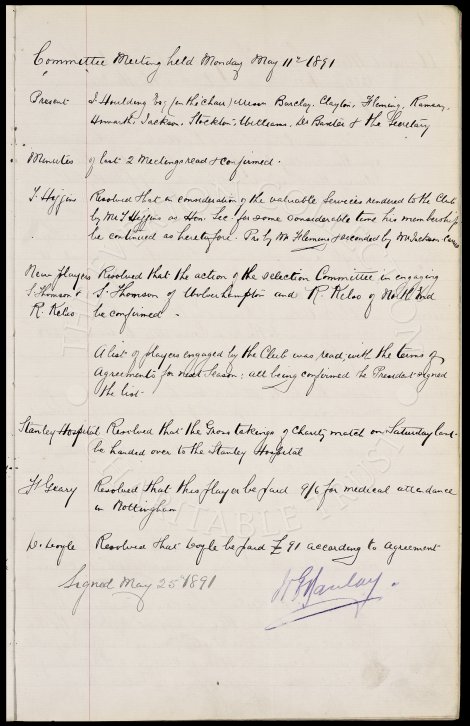 Committee Meeting held Monday May 11th 1891
Present J. Houlding Esq (in the chair) Messrs Barclay, Clayton, Fleming, Ramsay,
Howarth, Jackson, Stockton, Williams, Dr Baxter & the Secretary
Minutes of last 2 Meetings read & confirmed.
T. Higgins Resolved that in consideration of the valuable services rendered to the Club
by Mr T Higgins as Hon. Sec for some considerable time his membership
be continued as heretofore. Pro by Mr Fleming & seconded by Mr Jackson. Carried
New Players Resolved that the action of the Selection Committee in engaging
S. Thomson & S. Thomson of Wolverhampton and R. Kelso of
R. Kelso be confirmed.
A list of players engaged by the Club was read, with the terms of
Agreements for next Season; all being confirmed the President signed
the list.
Stanley Hospital Resolved that the Gross takings of Charity match on Saturday last
be handed over to the Stanley Hospital
F. Geary Resolved that this player be paid 9/6 for medical attendance
in Nottingham
D. Doyle Resolved that Doyle be paid £91 according to Agreement
Signed May 25th 1891